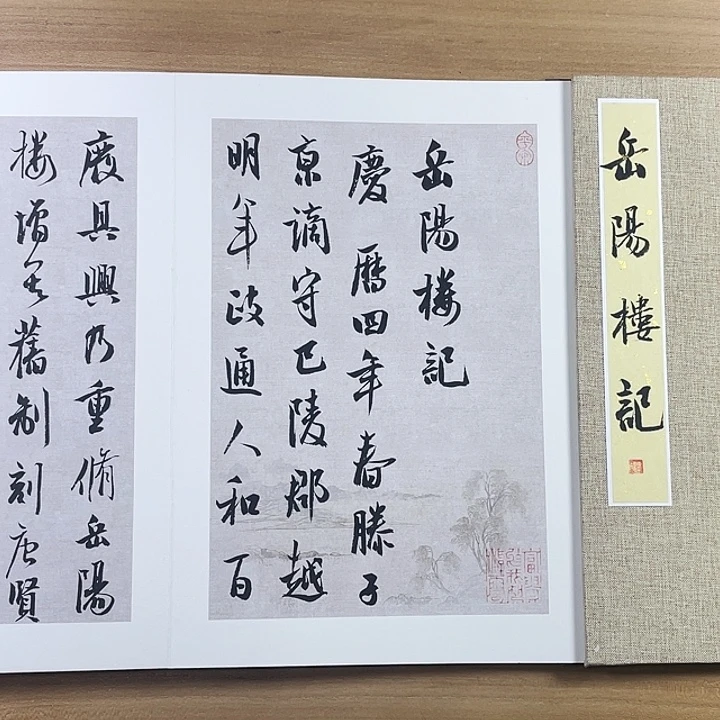 岳陽樓記
岳陽楼記
慶曆四年春滕子
京謫守巴陵郡越
明年政通人和百
廢具興乃重脩岳陽
楼增其舊制刻唐賢